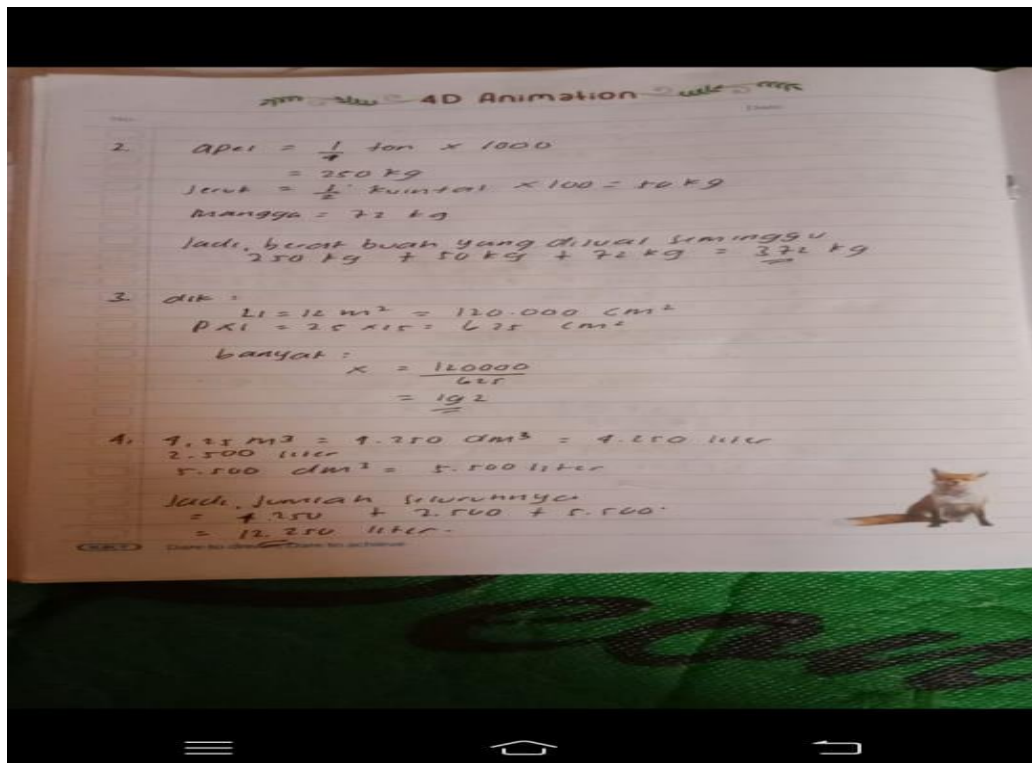 4D Animation
2. apel = 1/4 ton × 1000
= 250 kg
Jeruk = 1/2 kuintal × 100 = 50 kg
Mangga = 72 kg
Jadi, berat buah yang dijual seminggu
250 kg + 50 kg + 72 kg = 372 kg
3. dik :
L1 = 12 m² = 120.000 cm²
P×l = 25 × 25 = 625 cm²
banyak :
x = 120000/625
= 192
4. 4,25 m³ = 4.250 dm³ = 4.250 liter
2.500 liter
5.500 dm³ = 5.500 liter
Jadi, jumlah seluruhnya
= 4.250 + 2.500 + 5.500.
= 12.250 liter.